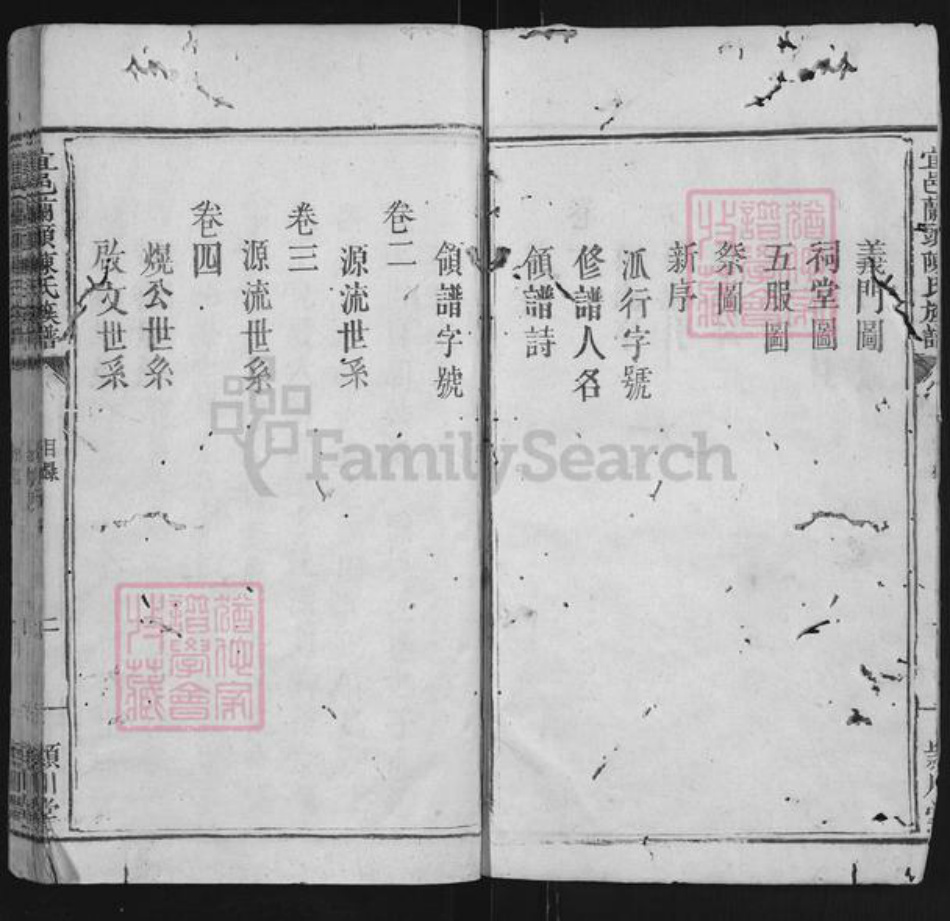 宜邑蘭頭陳氏族譜
義門圖
祠堂圖
五服圖
祭圖
新序
派行字號
修譜人名
領譜詩
領譜字號
卷二
源流世系
卷三
源流世系
卷四
燒公世系
啟文世系
宜邑蘭頭陳氏族譜
目錄
二
潁川堂
FamilySearch
譜學會